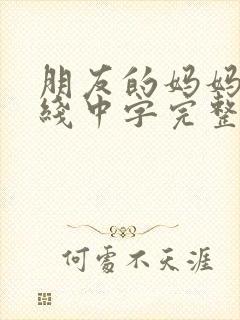 朋友的妈妈
线中字完整
何处不天涯